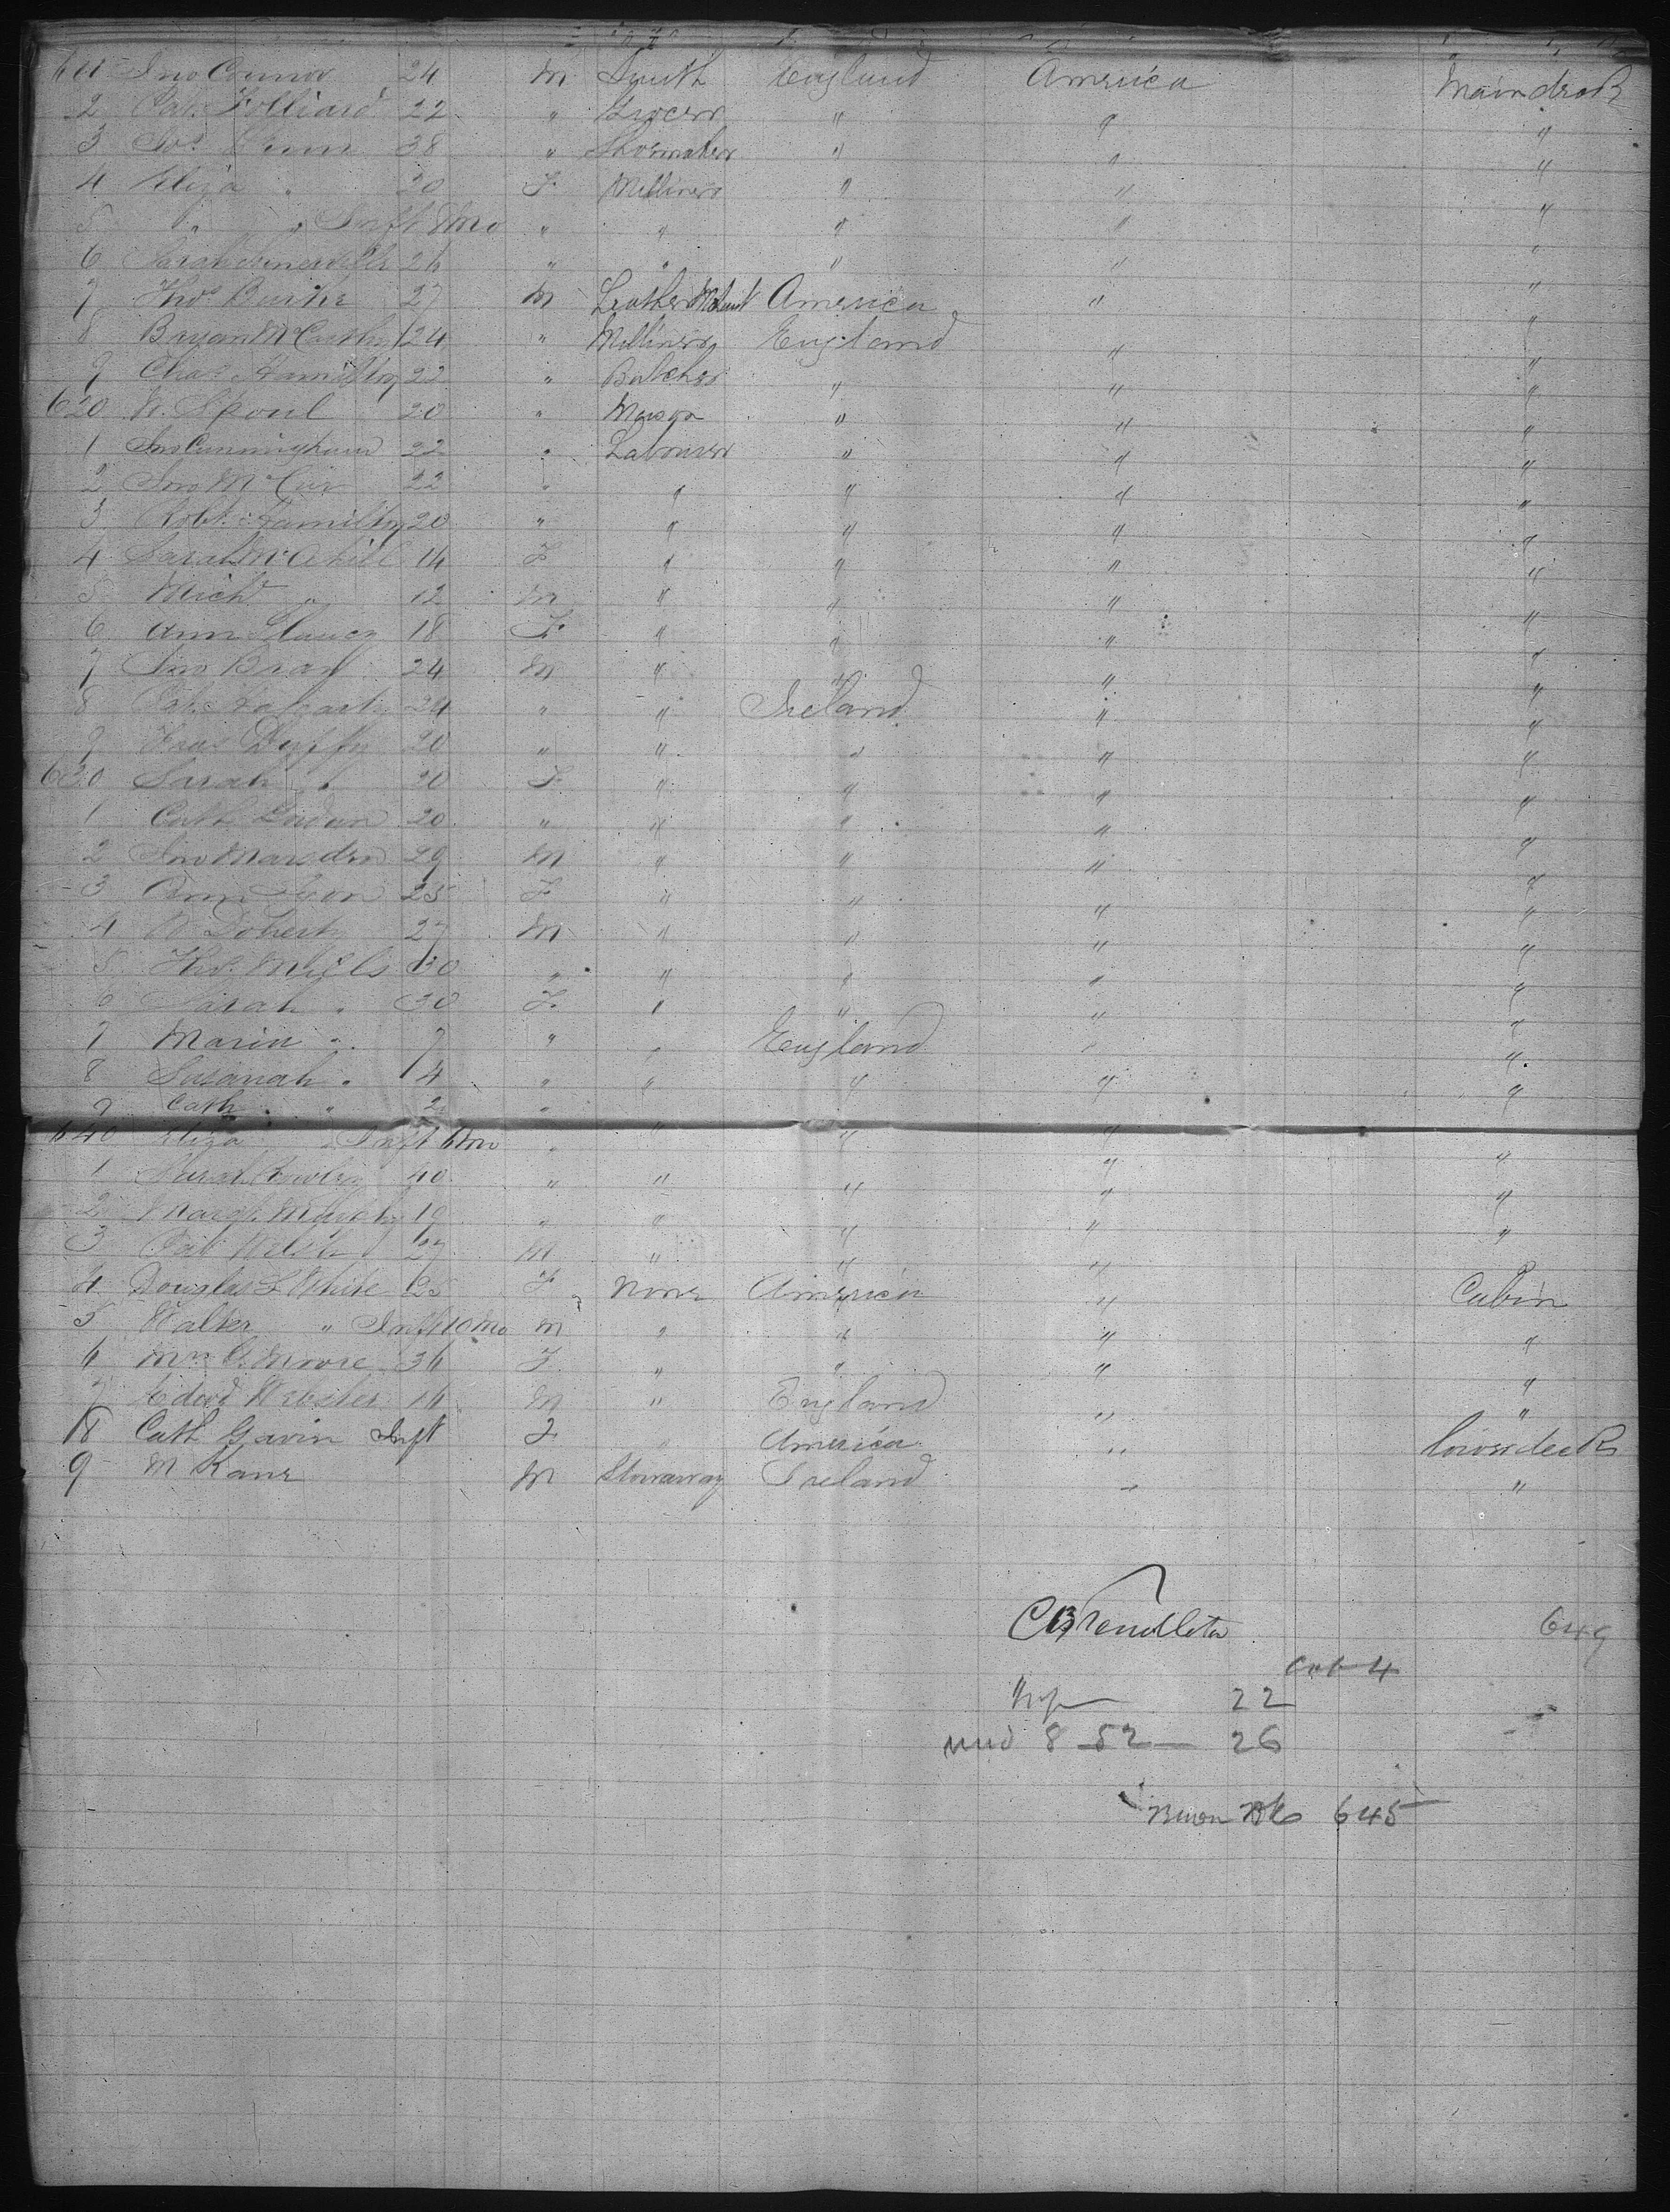 611 Jno Connor 24 M Smith England America Maindeck
2 Pat. Folliard 22 " Grocer " " "
3 Jos. 38 " Shoemaker " " "
4 Eliza " 20 F Milliner " " "
5 " " Inft 8 Mo " " " " "
6 Sarah 26 " " " " "
7 Thos Burke 27 M Leather Mchant America " "
8 Bryan McCarthy 24 " Milliner England " "
9 Chas. Hamilton 22 " Butcher " " "
620 W. Spoul 20 " Mason " " "
1 Jno Cunningham 22 " Labourer " " "
2 Jno McCue 22 " " " " "
3 Robt. Hamilton 20 " " " " "
4 Sarah McAhill 14 F " " " "
5 Michl " 12 M " " " "
6 Ann Clancy 18 F " " " "
7 Jno Bray 24 M " " " "
8 Pat. 24 " " Ireland " "
9 Fras Duffy 20 " " " " "
630 Sarah " 20 F " " " "
1 Cath 20 " " " " "
2 Jno Marsden 29 M " " " "
3 Ann 25 F " " " "
4 W Doherty 27 M " " " "
5 Thos. 30 " " " " "
6 Sarah " 30 F " " " "
7 Maria " 7 " " England " "
8 Susanah " 4 " " " " "
9 Cath " 2 " " " " "
640 Eliza " Inft 6 Mo " " " " "
1 Sarah 40 " " " " "
2 Margt. Murphy 19 " " " " "
3 Pat Welsh 27 M " " " "
4 Douglas L White 25 F None America " Cabin
5 Walter " Inft 10 Mo M " " " "
6 Mrs. Moore 36 F " " " "
7 Edwd Webster 16 M " England " "
18 Cath Gavin Inft F " America " lowerdeck
9 M Kane M Stowaway Ireland " "
C B Pendleton 649
Cab 4
22
8 52 — 26
645